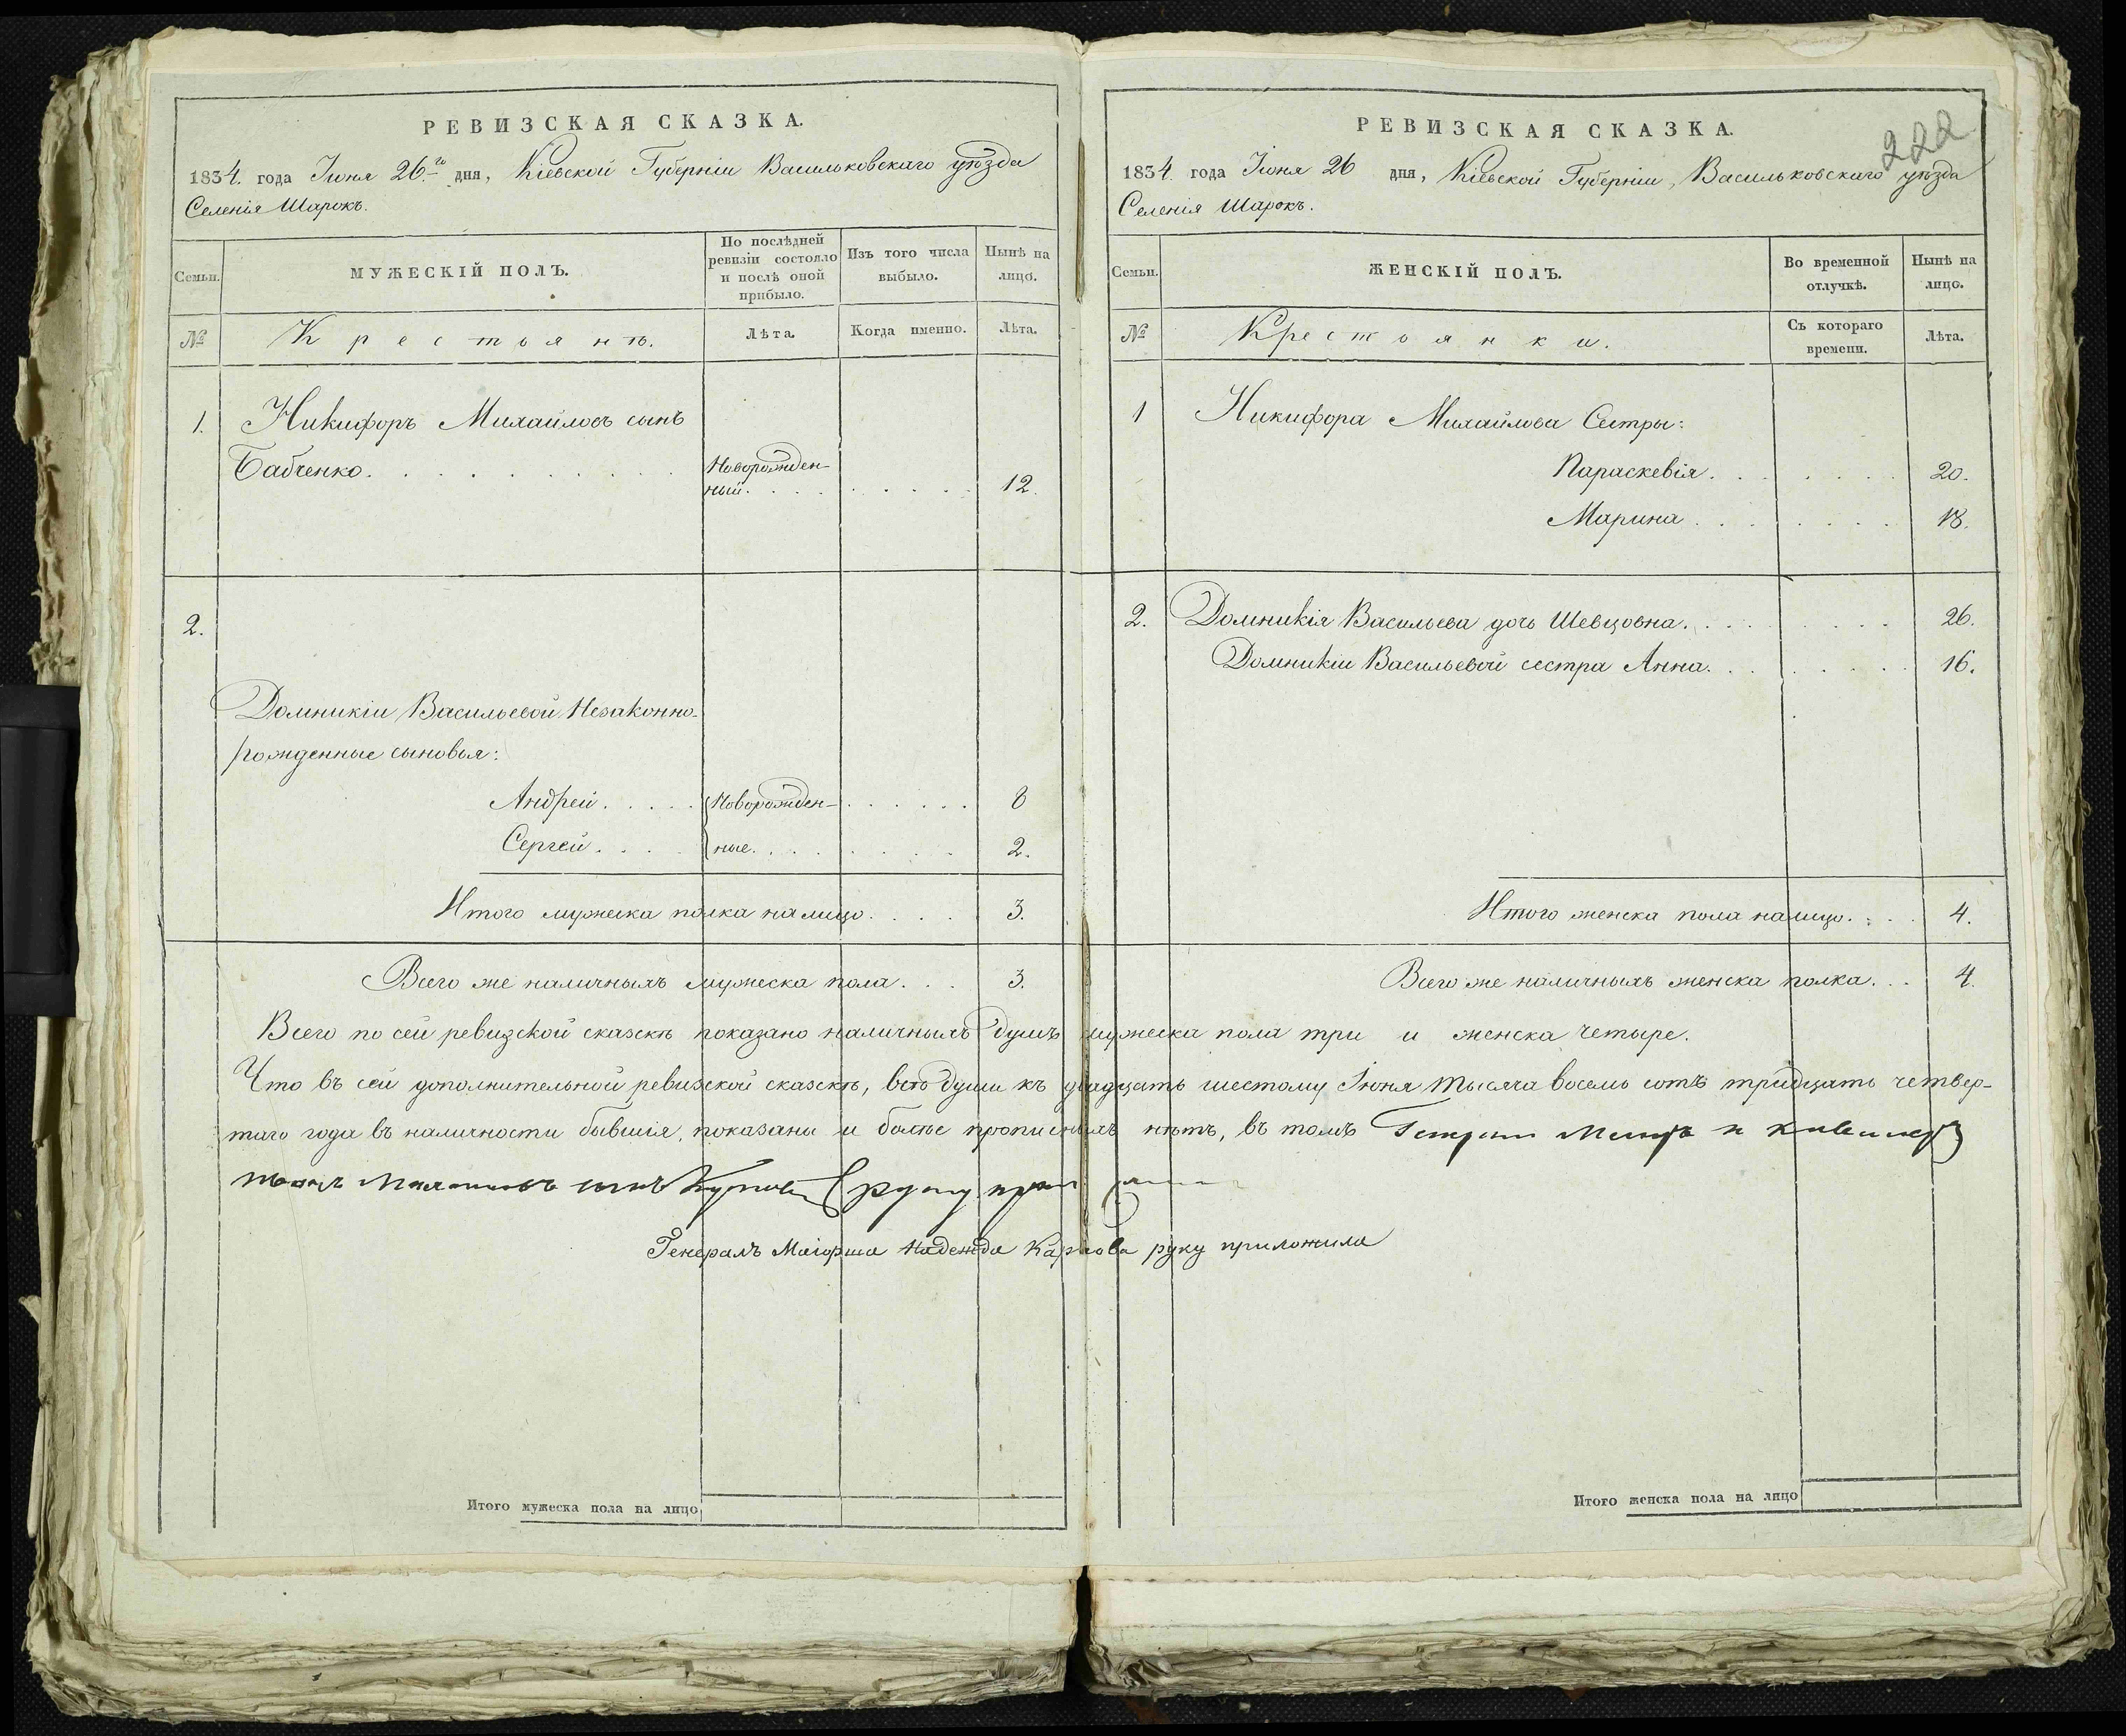 РЕВИЗСКАЯ СКАЗКА.
1834. года Іюня 26.го дня, Кіевской Губерніи Васильковскаго уѣзда
Селенія Шарокъ.
Семьи.
МУЖЕСКІЙ ПОЛЪ.
По послѣдней
ревизіи состояло
и послѣ оной
прибыло.
Изъ того числа
выбыло.
Нынѣ на
лицо.
№
Крестьянъ.
Лѣта.
Когда именно.
Лѣта.
1. Никифоръ Михайловъ сынъ
Бабченко. Новорожден-
ный. 12.
2.
Домникіи Васильевой Незаконно-
рожденные сыновья:
Андрей. Новорожден- 8
Сергей. ные. 2.
Итого мужеска полка налицо. 3.
Всего же наличныхъ мужеска пола. 3.
РЕВИЗСКАЯ СКАЗКА.
222
1834. года Іюня 26 дня, Кіевской Губерніи, Васильковскаго уѣзда
Селенія Шарокъ.
Семьи.
ЖЕНСКІЙ ПОЛЪ.
Во временной
отлучкѣ.
Нынѣ на
лицо.
№
Крестьянки.
Съ котораго
времени.
Лѣта.
1 Никифора Михайлова Сестры:
Параскевія. 20.
Марина. 18.
2. Домникія Васильева дочь Шевцовна. 26.
Домникіи Васильевой сестра Анна. 16.
Итого женска пола налицо. 4.
Всего же наличныхъ женска полка. 4.
Всего по сей ревизской сказскѣ показано наличныхъ душъ мужеска пола три и женска четыре.
Что въ сей дополнительной ревизской сказскѣ, всѣ души къ двадцать шестому Іюня тысяча восемь сотъ тридцать четвер-
таго года въ наличности бывшія, показаны и болѣе прописныхъ нѣтъ, въ томъ
сынъ руку
Генералъ Маіорша Надежда Карпова руку приложила
Итого мужеска пола на лицо
Итого женска пола на лицо